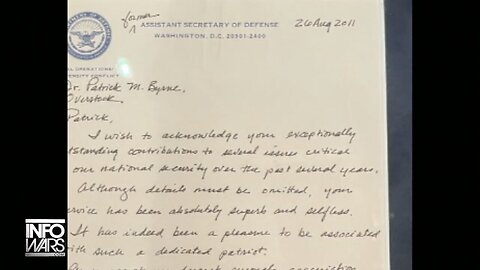 former
ASSISTANT SECRETARY OF DEFENSE
26 Aug 2011
WASHINGTON, D.C. 20301-2400
Dr. Patrick M. Byrne,
Overstock
Patrick,
I wish to acknowledge your exceptionally
standing contributions to several issues critical
our national security over the past several years.
Although details must be omitted, your
service has been absolutely superb and selfless.
It has indeed been a pleasure to be associated
with such a dedicated patriot.
INFO
WARS.com